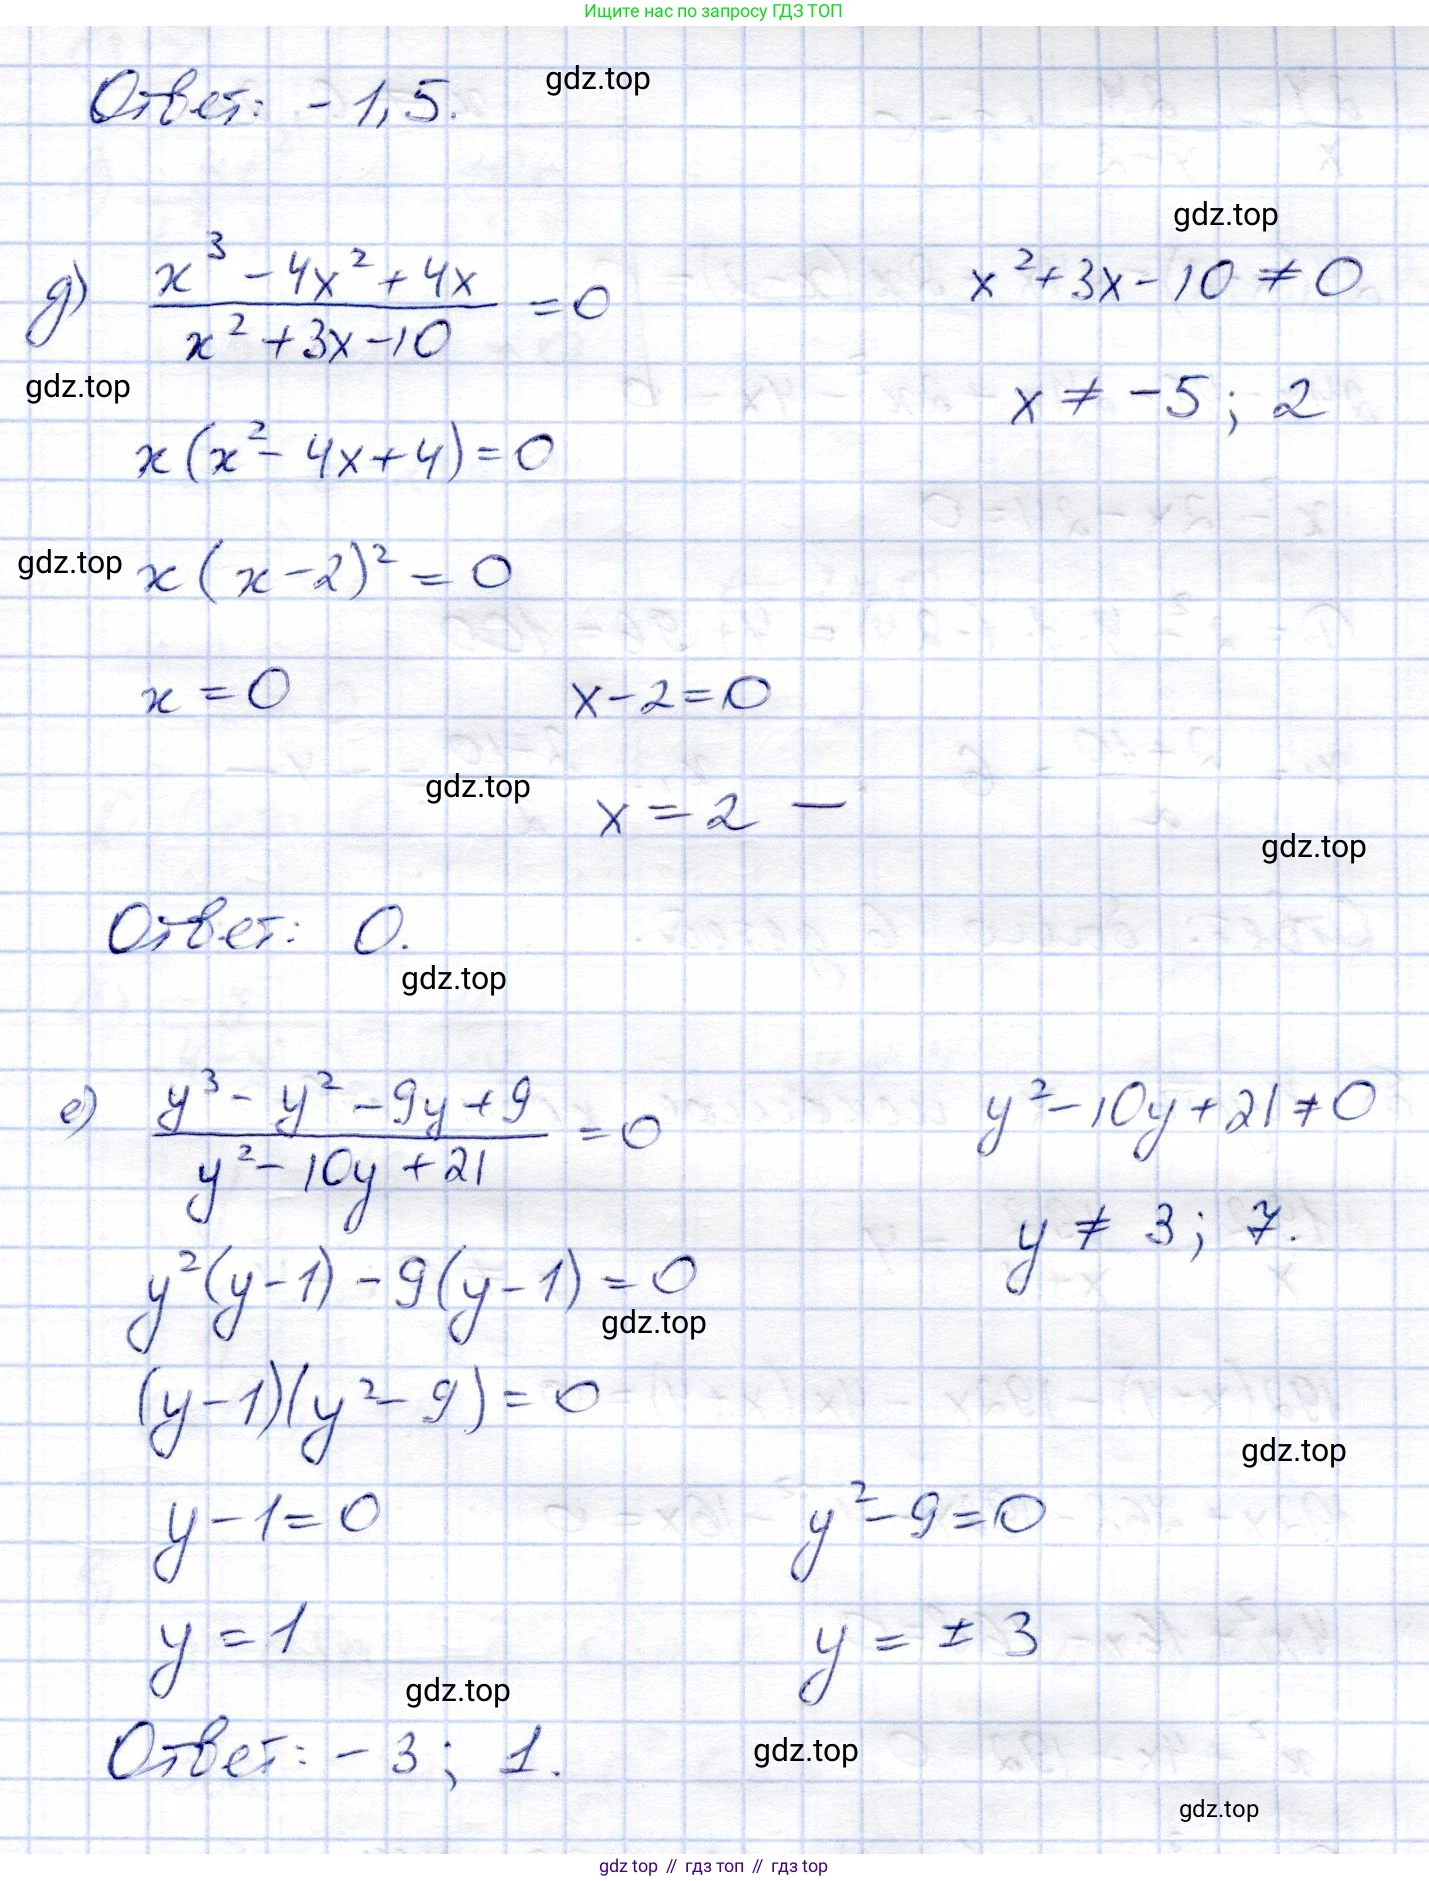 Ищите нас по запросу ГДЗ ТОП
Ответ: -1,5.
gdz.top
gdz.top
д) (x³ - 4x² + 4x)/(x² + 3x - 10) = 0
x² + 3x - 10 ≠ 0
gdz.top
x ≠ -5; 2
x(x² - 4x + 4) = 0
gdz.top
x(x - 2)² = 0
x = 0
x - 2 = 0
gdz.top
x = 2 —
gdz.top
Ответ: 0.
gdz.top
е) (y³ - y² - 9y + 9)/(y² - 10y + 21) = 0
y² - 10y + 21 ≠ 0
y ≠ 3; 7.
y²(y - 1) - 9(y - 1) = 0
gdz.top
(y - 1)(y² - 9) = 0
gdz.top
y - 1 = 0
y² - 9 = 0
y = 1
y = ± 3
gdz.top
Ответ: -3; 1.
gdz.top
gdz.top
gdz top // гдз топ // gdz top